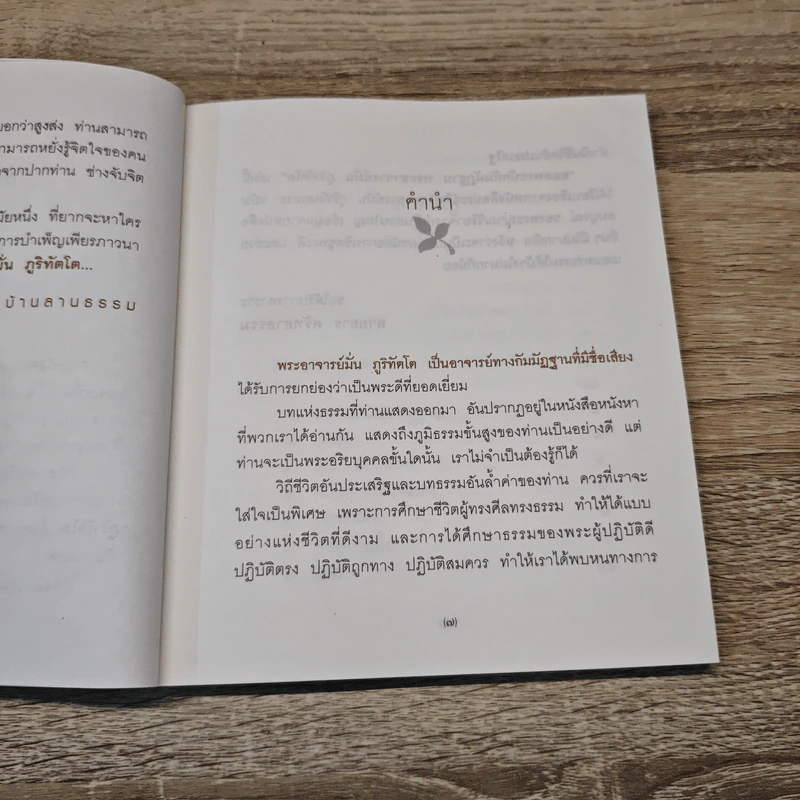 ท่านสามารถ
หยั่งรู้จิตใจของคน
จากปากท่าน ช่างจับจิต
หนึ่ง ที่ยากจะหาใคร
การบำเพ็ญเพียรภาวนา
ภูริทัตโต...
บ้านลานธรรม
คำนำ
พระอาจารย์มั่น ภูริทัตโต เป็นอาจารย์ทางกัมมัฏฐานที่มีชื่อเสียง
ได้รับการยกย่องว่าเป็นพระดีที่ยอดเยี่ยม
บทแห่งธรรมที่ท่านแสดงออกมา อันปรากฏอยู่ในหนังสือหนังหา
ที่พวกเราได้อ่านกัน แสดงถึงภูมิธรรมขั้นสูงของท่านเป็นอย่างดี แต่
ท่านจะเป็นพระอริยบุคคลขั้นใดนั้น เราไม่จำเป็นต้องรู้ก็ได้
วิถีชีวิตอันประเสริฐและบทธรรมอันล้ำค่าของท่าน ควรที่เราจะ
ใส่ใจเป็นพิเศษ เพราะการศึกษาชีวิตผู้ทรงศีลทรงธรรม ทำให้ได้แบบ
อย่างแห่งชีวิตที่ดีงาม และการได้ศึกษาธรรมของพระผู้ปฏิบัติดี
ปฏิบัติตรง ปฏิบัติถูกทาง ปฏิบัติสมควร ทำให้เราได้พบหนทางการ
(๗)